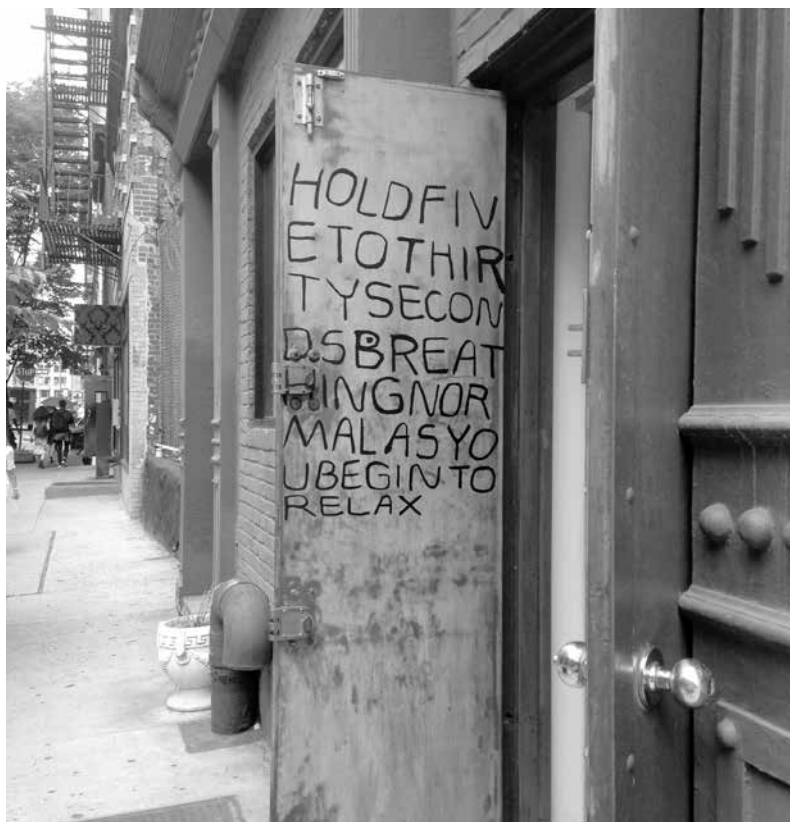 STOP
HOLDFIV
ETOTHIR
TYSECON
DSBREAT
HINGNOR
MALASYO
UBEGINTO
RELAX